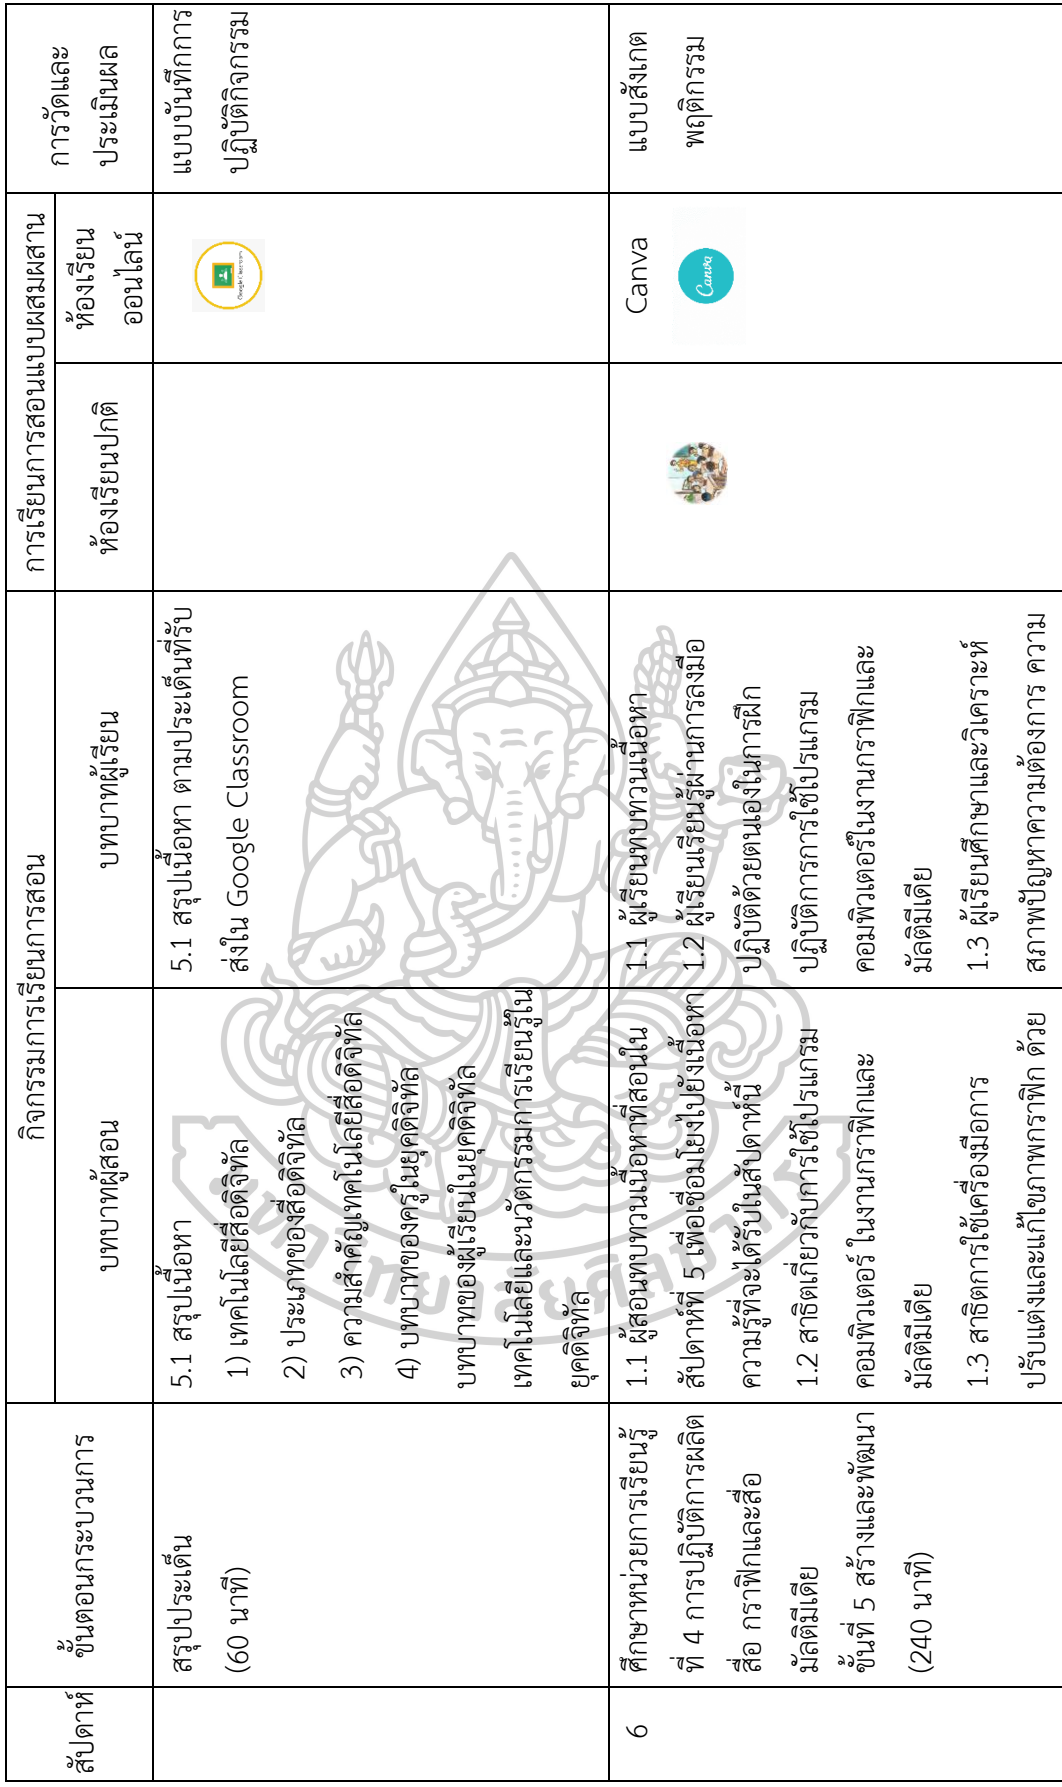 สัปดาห์
ขั้นตอนกระบวนการ
กิจกรรมการเรียนการสอน
บทบาทผู้สอน
บทบาทผู้เรียน
การเรียนการสอนแบบผสมผสาน
ห้องเรียนปกติ
ห้องเรียน
ออนไลน์
การวัดและ
ประเมินผล
สรุปประเด็น
(60 นาที)
5.1 สรุปเนื้อหา
1) เทคโนโลยีสื่อดิจิทัล
2) ประเภทของสื่อดิจิทัล
3) ความสำคัญเทคโนโลยีสื่อดิจิทัล
4) บทบาทของครูในยุคดิจิทัล
บทบาทของผู้เรียนในยุคดิจิทัล
เทคโนโลยีและนวัตกรรมการเรียนรู้ใน
ยุคดิจิทัล
5.1 สรุปเนื้อหา ตามประเด็นที่รับ
ส่งใน Google Classroom
Google Classroom
แบบบันทึกการ
ปฏิบัติกิจกรรม
6
ศึกษาหน่วยการเรียนรู้
ที่ 4 การปฏิบัติการผลิต
สื่อ กราฟิกและสื่อ
มัลติมีเดีย
ขั้นที่ 5 สร้างและพัฒนา
(240 นาที)
1.1 ผู้สอนทบทวนเนื้อหาที่สอนใน
สัปดาห์ที่ 5 เพื่อเชื่อมโยงไปยังเนื้อหา
ความรู้ที่จะได้รับในสัปดาห์นี้
1.2 สาธิตเกี่ยวกับการใช้โปรแกรม
คอมพิวเตอร์ ในงานกราฟิกและ
มัลติมีเดีย
1.3 สาธิตการใช้เครื่องมือการ
ปรับแต่งและแก้ไขภาพกราฟิก ด้วย
1.1 ผู้เรียนทบทวนเนื้อหา
1.2 ผู้เรียนเรียนรู้ผ่านการลงมือ
ปฏิบัติด้วยตนเองในการฝึก
ปฏิบัติการการใช้โปรแกรม
คอมพิวเตอร์ในงานกราฟิกและ
มัลติมีเดีย
1.3 ผู้เรียนศึกษาและวิเคราะห์
สภาพปัญหาความต้องการ ความ
Canva
Canva
แบบสังเกต
พฤติกรรม
มหาวิทยาลัยศิลปากร